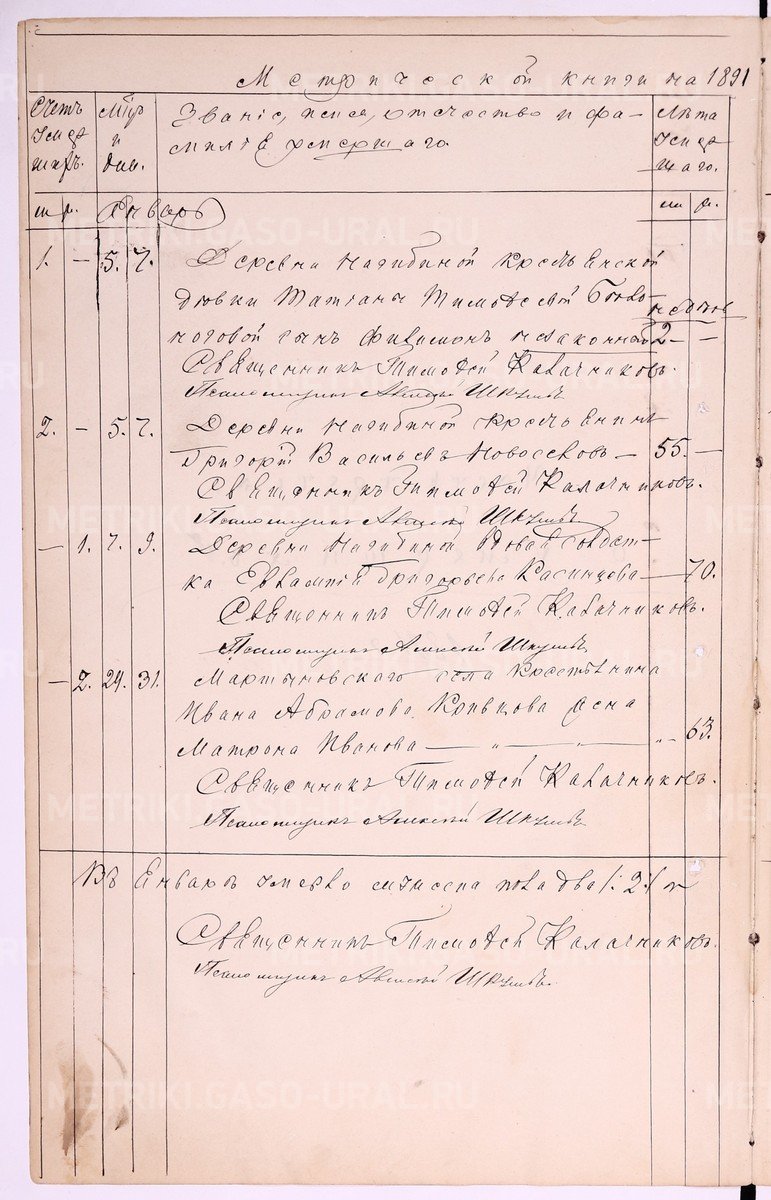 Метрической книги на 1891
Счетъ умершихъ.
Мѣсяцъ и дни.
Званіе, имя, отчество и фамилія умершаго.
Лѣта умершаго.
м. ж. Январь м. ж.
1. — 5. 7. Деревни Нагибиной крестьянской
дѣвки Татіаны Тимофеевой
сынъ Филимонъ незаконный 2 —
Священникъ Тимофей Калачниковъ.
Псаломщикъ Алексѣй
2. — 5. 7. Деревни Нагибиной крестьянинъ
Григорій Васильевъ Новоселовъ — 55. —
Священникъ Тимофей Калачниковъ.
Псаломщикъ Алексѣй
— 1. 7. 9. Деревни Нагибиной вдова солдат-
ка Евлампія Григорьева Казанцова — 70.
Священникъ Тимофей Калачниковъ.
Псаломщикъ Алексѣй
— 2. 29. 31. Мартыновского села крестьянина
Ивана Абрамова Кривцова жена
Матрона Иванова — „ — „ — „ — 63.
Священникъ Тимофей Калачниковъ.
Псаломщикъ Алексѣй
Въ Январѣ умерло мужеска пола два /: 2 :/ и
Священникъ Тимофей Калачниковъ.
Псаломщикъ Алексѣй
METRIKI.GASO-URAL.RU